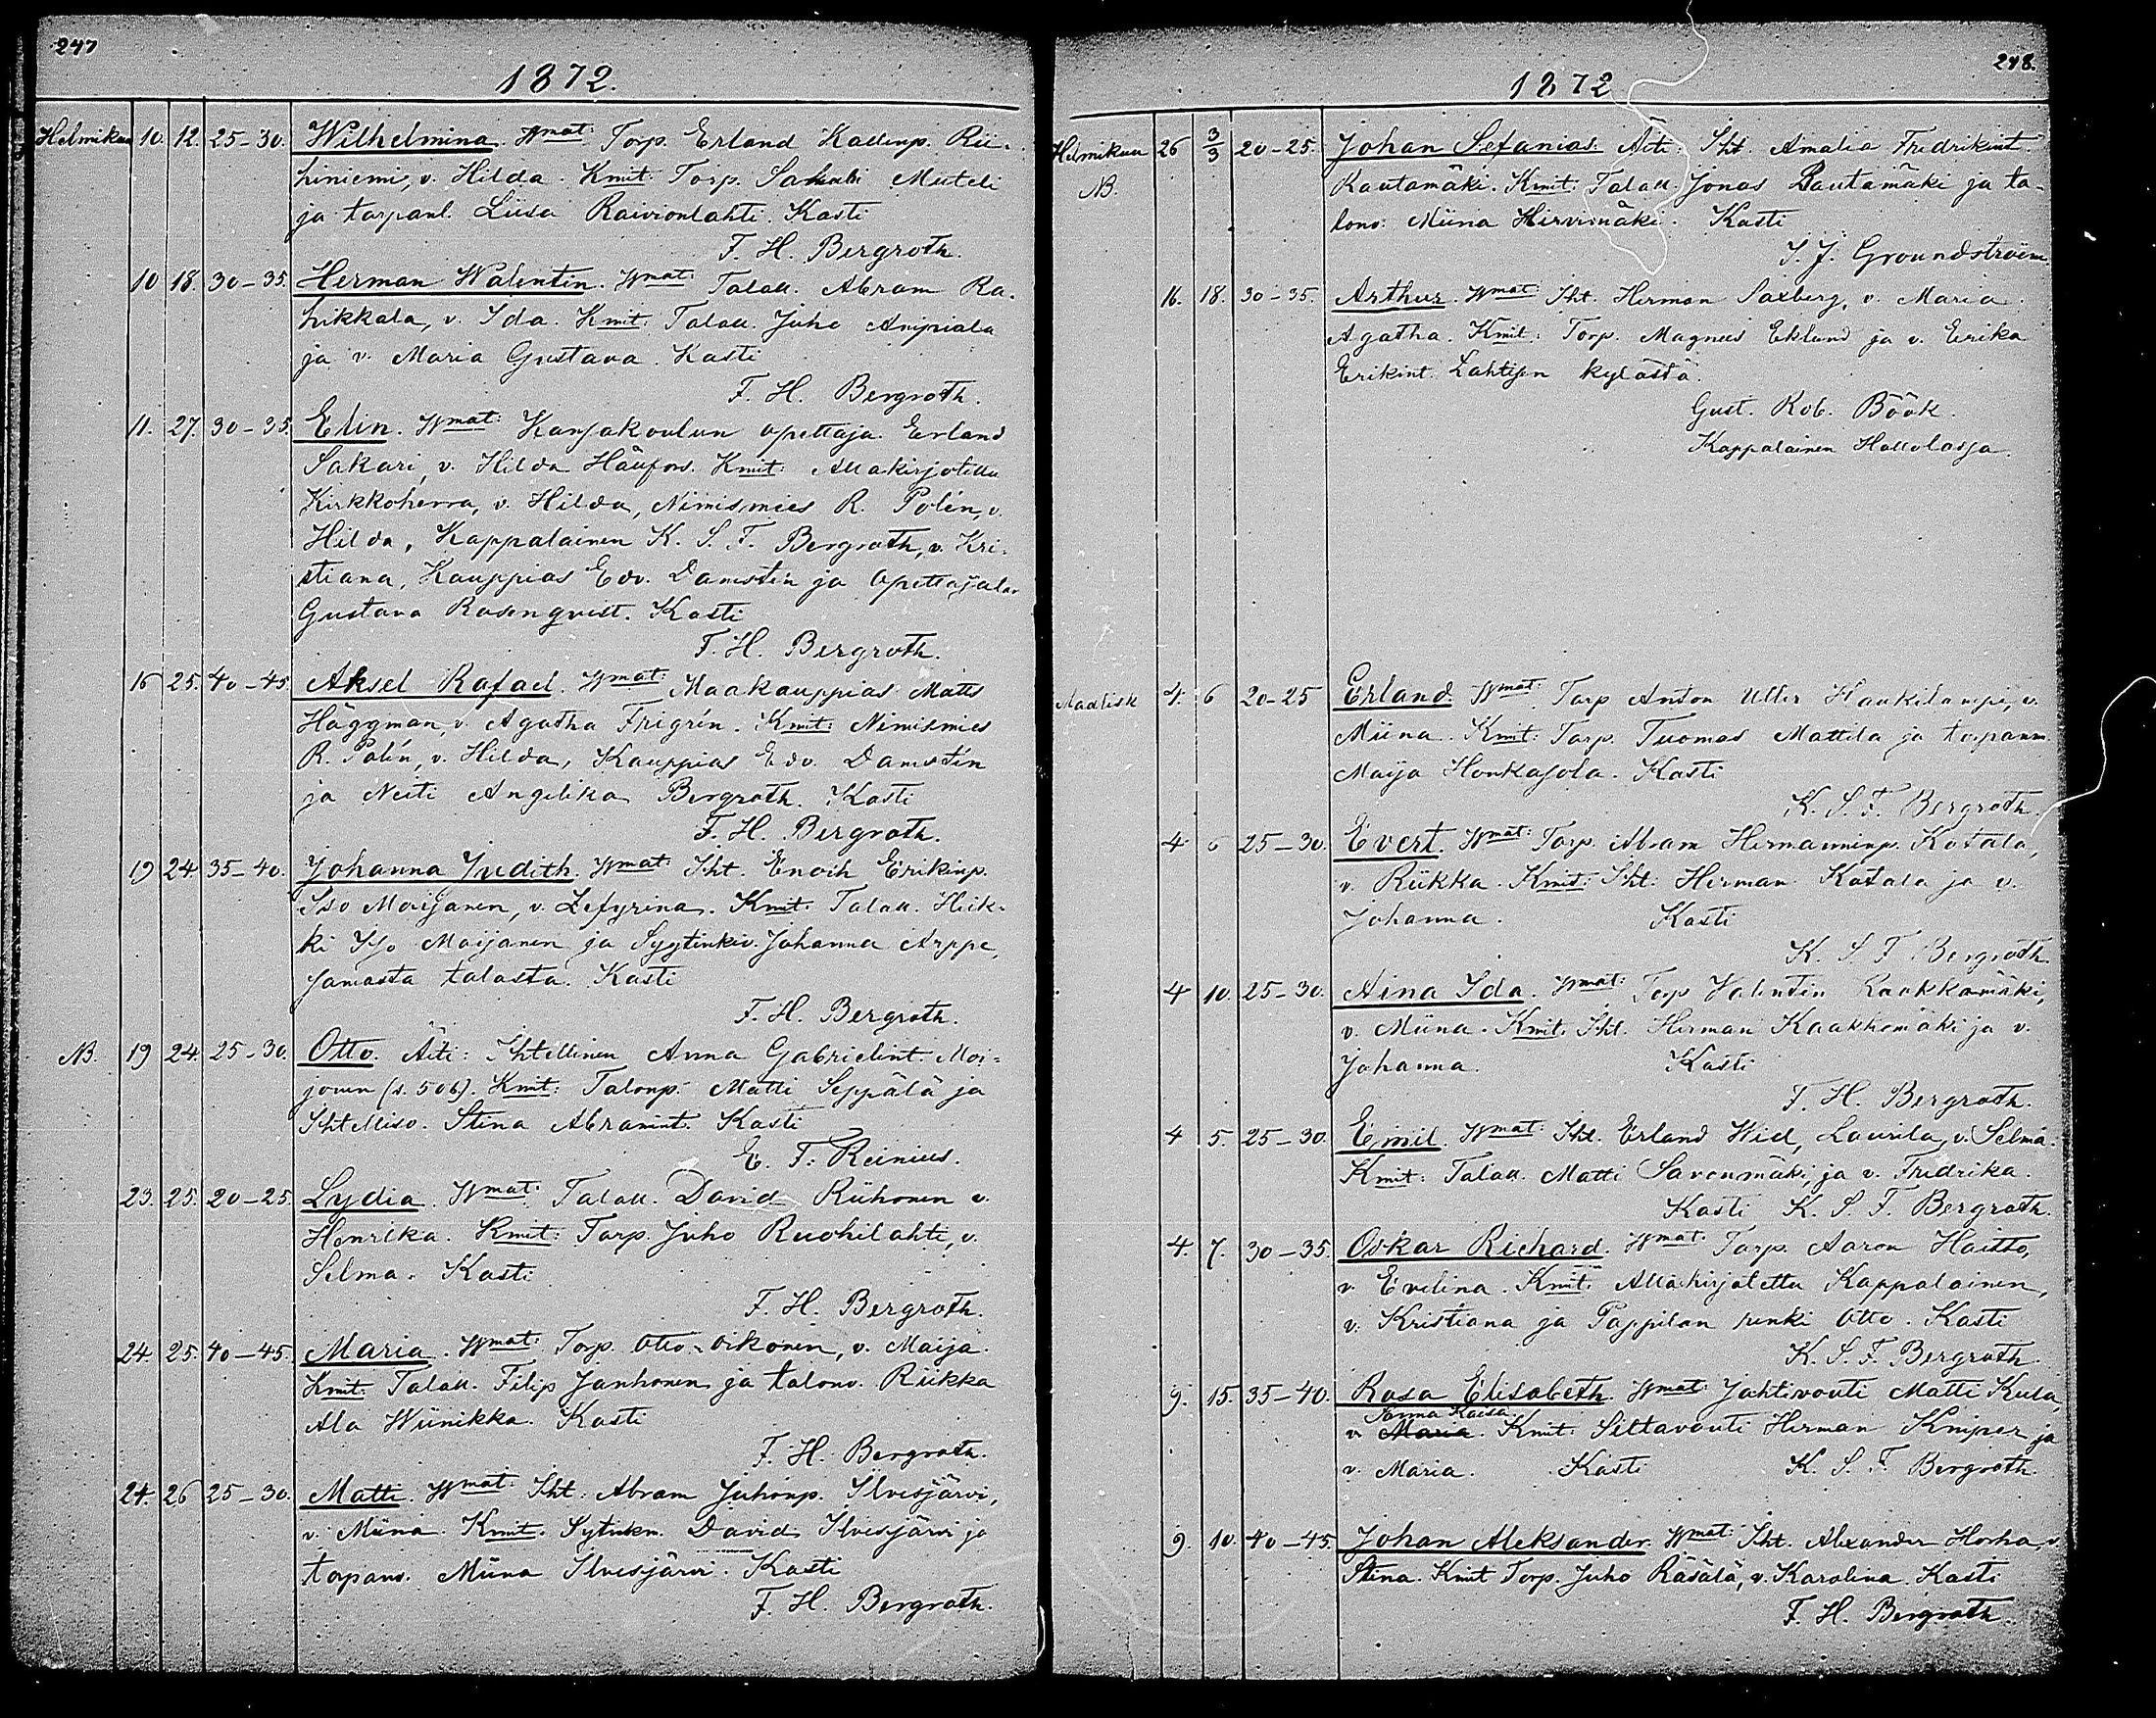 247
1872.
Helmikuu 10. 12. 25-30. Wilhelmina. Wmat: Torp. Erland Kallenp. Rii-
hiniemi, v. Hilda. Kmit: Torp. Samuli Muteli
ja torpanl. Liisa Raivionlahti. Kasti
F. H. Bergroth.
10 18. 30-35. Herman Walentin. Wmat: Talall. Abram Ra-
hikkala, v. Ida. Kmit: Talall. Juho Anjiala
ja v. Maria Gustava. Kasti
F. H. Bergroth.
11. 27. 30-35. Elin. Wmat: Kansakoulun opettaja Erland
Sakari, v. Hilda Kmit: Allakirjotettu
Kirkkoherra, v. Hilda, Nimismies R. Polén, v.
Hilda, Kappalainen K. S. F. Bergroth, v. Kri-
stiana, Kauppias Edv. Damstén ja opettajatar
Gustava Rosenqvist. Kasti
F. H. Bergroth.
16 25. 40-45. Aksel Rafael. Wmat: Maakauppias Matts
Häggman, v. Agatha Frigrén. Kmit: Nimismies
R. Polén, v. Hilda, Kauppias Edv. Damstén
ja Neiti Angelika Bergroth. Kasti
F. H. Bergroth.
19 24. 35-40. Johanna Judith. Wmat: Iht. Enoch Erikinp.
Iso Maijanen, v. Zefyrina. Kmit: Talall. Heik-
ki Iso Maijanen ja Syytinkiv. Johanna Arppe,
samasta talosta. Kasti
F. H. Bergroth.
NB. 19 24 25-30. Otto. Äiti: Ihtellinen Anna Gabrielint. Moi-
(s. 506). Kmit: Talonp. Matti Seppälä ja
Ihtelliso. Stina Abramint. Kasti
E. F. Reinius.
23. 25. 20-25. Lydia. Wmat: Talall. David Riihonen v.
Henrika. Kmit: Torp. Juho Ruohilahti, v.
Selma. Kasti
F. H. Bergroth.
24. 25. 40-45. Maria. Wmat: Torp. Otto Oikonen, v. Maija.
Kmit: Talall. Filip Janhonen ja talonv. Riikka
Ala Wiinikka. Kasti
F. H. Bergroth.
24. 26 25-30. Matti. Wmat: Iht. Abram Juhonp. Ilvesjärvi,
v. Miina. Kmit: Sytinkm. David Ilvesjärvi ja
torpanv. Miina Ilvesjärvi. Kasti
F. H. Bergroth.
248.
1872
Helmikuu 26 3/3 20-25. Johan Sefanias. Äiti: Iht. Amalia Fredrikint.
NB. Rautamäki. Kmit: Talall. Jonas Rautamäki ja ta-
lonv. Miina Hirvimäki. Kasti
I. J. Groundstroem.
16. 18. 30-35. Arthur. Wmat: Iht. Herman Saxberg, v. Maria
Agatha. Kmit: Torp. Magnus Eklund ja v. Erika
Erikint. Lahtisen kylästä.
Gust. Rob. Böök.
Kappalainen Hollolassa.
Maalisk 4. 6 20-25 Erland. Wmat: Torp Anton Haukilampi, v.
Miina. Kmit: Torp. Tuomas Mattila ja torpanm.
Maija Honkajola. Kasti
K. S. F. Bergroth.
4 6 25-30. Evert. Wmat: Torp. Abram Hermanninp. Katala,
v. Riikka. Kmit: Iht. Herman Katala ja v.
Johanna. Kasti
K. S. F. Bergroth.
4 10. 25-30. Aina Ida. Wmat: Torp Valentin Kaakkomäki,
v. Miina. Kmit: Iht. Herman Kaakkomäki ja v.
Johanna. Kasti
F. H. Bergroth.
4 5. 25-30. Emil. Wmat: Iht. Erland Laurila, v. Selma.
Kmit: Talall. Matti Savenmäki ja v. Fredrika.
Kasti K. S. F. Bergroth.
4. 7. 30-35. Oskar Richard. Wmat: Torp. Aaron Haitto,
v. Evelina. Kmit: Allakirjotettu Kappalainen,
v. Kristiana ja Pappilan renki Otto. Kasti
K. S. F. Bergroth.
9. 15. 35-40. Rosa Elisabeth. Wmat: Jahtivouti Matti Kula,
Sanna Kaisa
v. Maria. Kmit: Siltavouti Herman Kniper ja
v. Maria. Kasti K. S. F. Bergroth.
9. 10. 40-45. Johan Aleksander. Wmat: Iht. Alexander Horha, v.
Stina. Kmit Torp. Juho Räsälä, v. Karolina. Kasti
F. H. Bergroth.